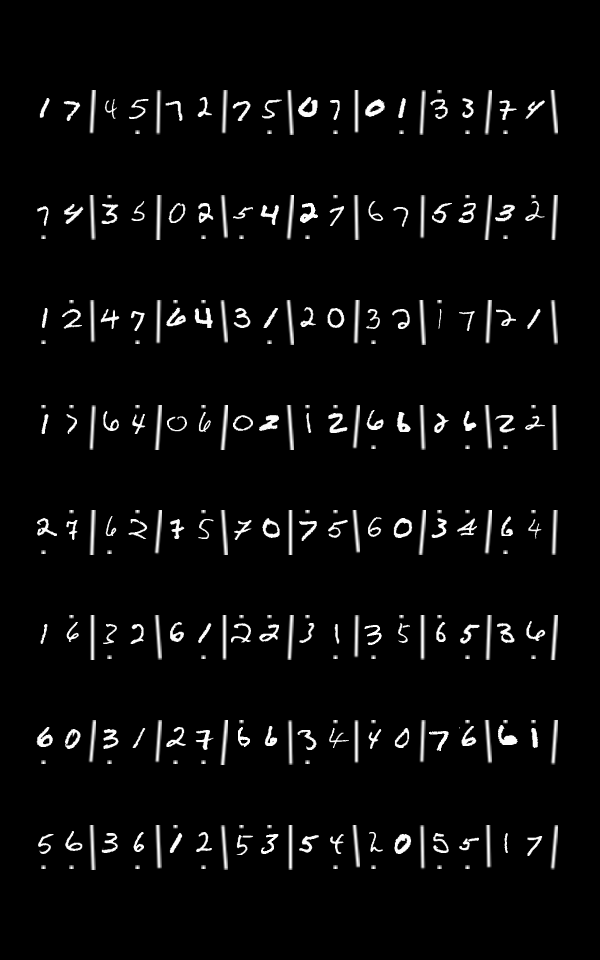 1 7 | 4 5 | 7 2 | 7 5 | 0 7 | 0 1 | 3 3 | 7 4 |
7 4 | 3 5 | 0 2 | 5 4 | 2 7 | 6 7 | 5 3 | 3 2 |
1 2 | 4 7 | 6 4 | 3 1 | 2 0 | 3 2 | 1 7 | 2 1 |
1 7 | 6 4 | 0 6 | 0 2 | 1 2 | 6 6 | 2 6 | 2 2 |
2 7 | 6 2 | 7 5 | 7 0 | 7 5 | 6 0 | 3 4 | 6 4 |
1 6 | 3 2 | 6 1 | 2 2 | 3 1 | 3 5 | 6 5 | 3 6 |
6 0 | 3 1 | 2 7 | 6 6 | 3 4 | 4 0 | 7 6 | 6 1 |
5 6 | 3 6 | 1 2 | 5 3 | 5 4 | 2 0 | 5 5 | 1 7 |